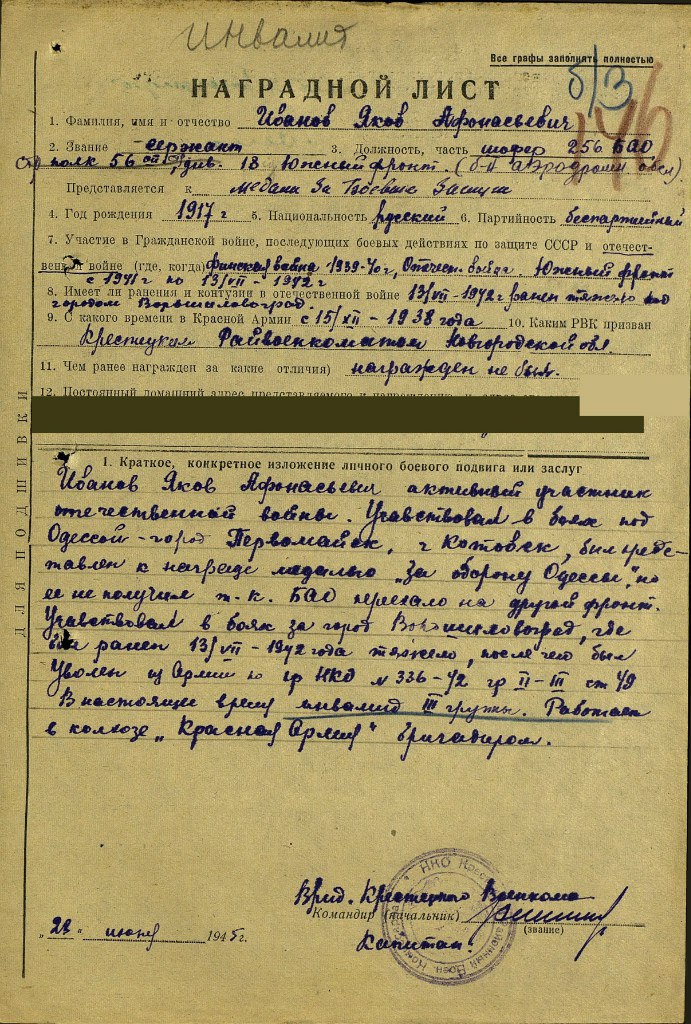 Инвалид
Все графы заполнять полностью
б/з
146
НАГРАДНОЙ ЛИСТ
1. Фамилия, имя и отчество Иванов Яков Афонасьевич
2. Звание сержант 3. Должность, часть шофер 256 БАО
полк 56 див. 18 Южный фронт. (б-н аэродромн обсл)
Представляется к медали За Боевые Заслуги
4. Год рождения 1917 г 5. Национальность русский 6. Партийность беспартийный
7. Участие в Гражданской войне, последующих боевых действиях по защите СССР и отечест-
венной войне (где, когда) Финская война 1939-40 г, Отечен. война. Южный фронт
с 1941 г по 13/VII - 1942 г
8. Имеет ли ранения и контузии в отечественной войне 13/VII - 1942 г ранен тяжело под
городом Ворошиловоград
9. С какого времени в Красной Армии с 15/XII - 1938 года 10. Каким РВК призван
Крестецким Райвоенкоматом Новгородской обл.
11. Чем ранее награжден за какие отличия) награжден не был.
12. Постоянный домашний адрес представляемого к награждению и
ДЛЯ ПОДШИВКИ
1. Краткое, конкретное изложение личного боевого подвига или заслуг
Иванов Яков Афонасьевич активный участник
отечественной войны. Учавствовал в боях под
Одессой - город Первомайск, г Котовск, был предс-
тавлен к награде медалью „За оборону Одессы", но
ее не получил т.к. БАО переехало на другой фронт.
Учавствовал в боях за город Ворошиловоград, где
был ранен 13/VII - 1942 года тяжело, после чего был
Уволен из Армии по пр НКО N 336-42 гр II-III ст 49
В настоящее время инвалид III группы. Работает
в колхозе „Красная Армия" бригадиром.
Врид. Крестецкого Военкома
Командир (начальник)
(звание)
Капитан:
„28" июня 1945 г.